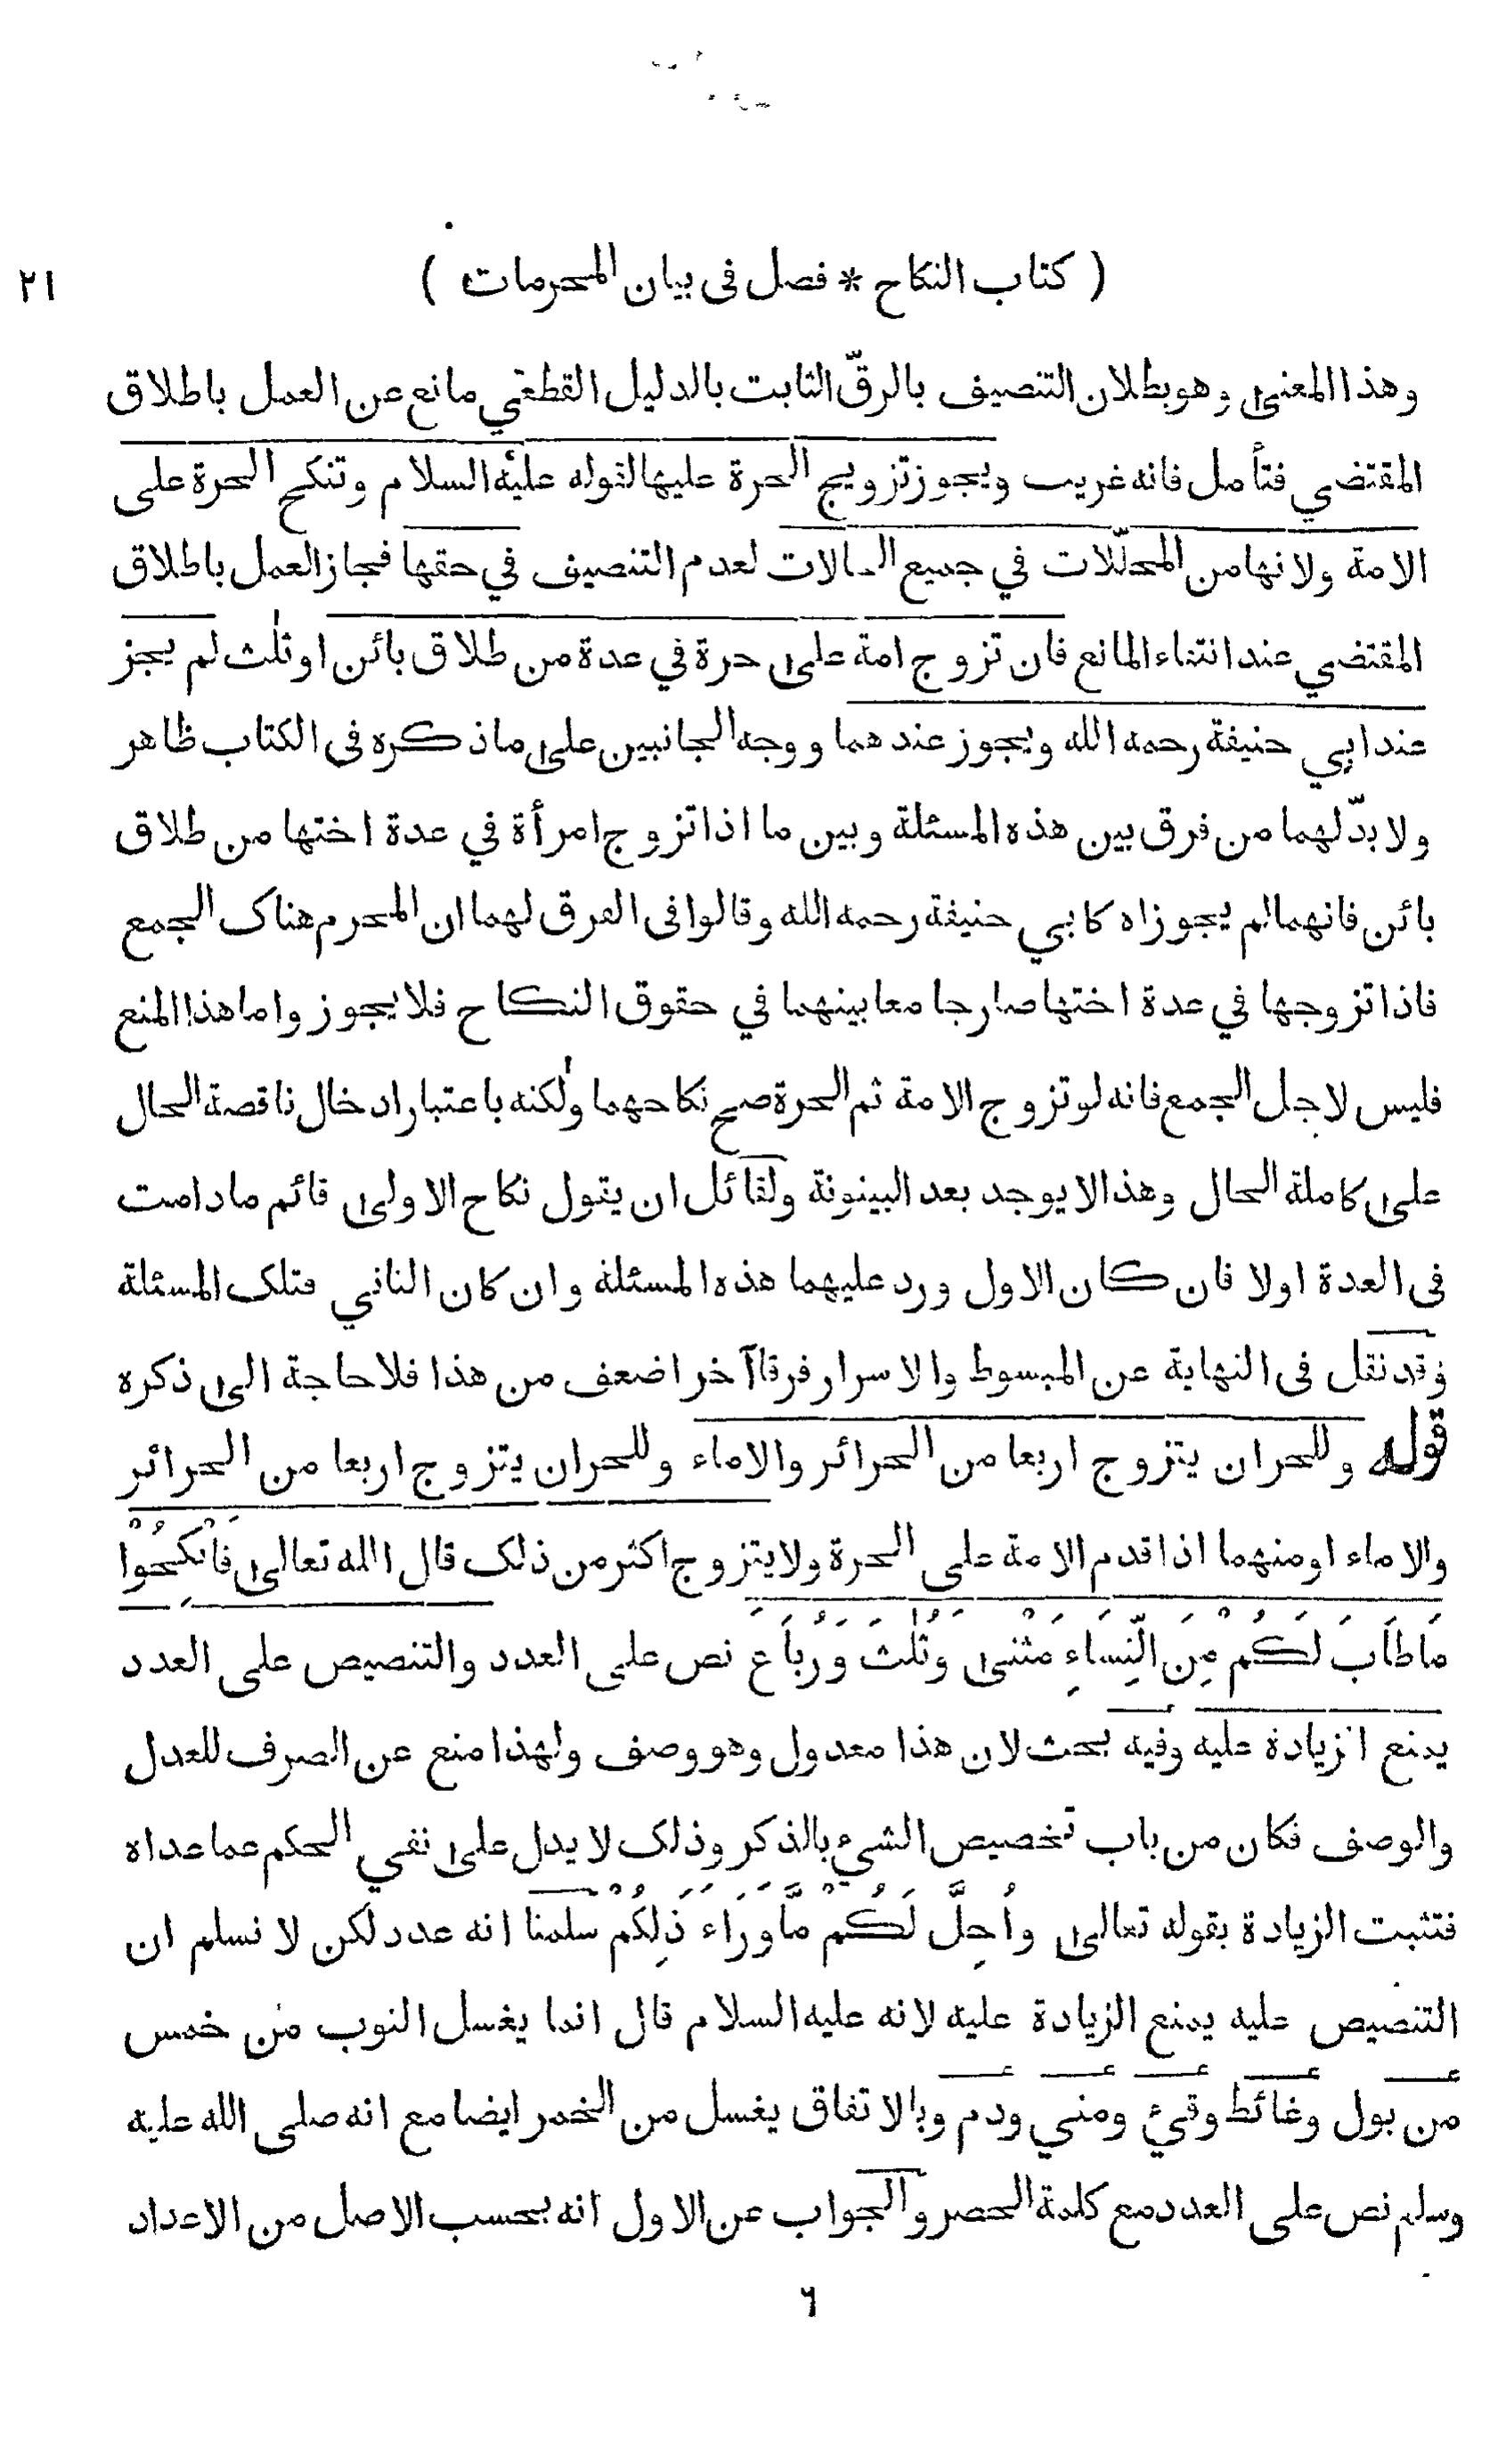 ( كتاب النكاح * فصل فى بيان المحرمات )
٢١
وهذا المعنىٰ وهو بطلان التنصيف بالرقّ الثابت بالدليل القطعي مانع عن العمل باطلاق
المقتضي فتأمل فانه غريب ويجوز تزويج الحرة عليها لقوله عليه السلام وتنكح الحرة على
الامة ولانها من المحلّلات في جميع الحالات لعدم التنصيف في حقها فجاز العمل باطلاق
المقتضي عند انتفاء المانع فان تزوج امة علىٰ حرة في عدة من طلاق بائن او ثلٰث لم يجز
عند ابي حنيفة رحمه الله ويجوز عندهما ووجه الجانبين علىٰ ماذكره فى الكتاب ظاهر
ولا بدّ لهما من فرق بين هذه المسئلة وبين ما اذا تزوج امرأة في عدة اختها من طلاق
بائن فانهما لم يجوزاه كابي حنيفة رحمه الله وقالوا فى الفرق لهما ان المحرم هناك الجمع
فاذا تزوجها في عدة اختها صار جامعا بينهما في حقوق النكاح فلا يجوز واما هذا المنع
فليس لاجل الجمع فانه لو تزوج الامة ثم الحرة صح نكاحهما ولٰكنه باعتبار ادخال ناقصة الحال
علىٰ كاملة الحال وهذا لا يوجد بعد البينونة ولقائل ان يقول نكاح الاولىٰ قائم مادامت
فى العدة اولا فان كان الاول ورد عليهما هذه المسئلة وان كان الثاني فتلك المسئلة
وقد نقل فى النهاية عن المبسوط والاسرار فرقا آخر اضعف من هذا فلا حاجة الىٰ ذكره
قوله وللحر ان يتزوج اربعا من الحرائر والاماء وللحر ان يتزوج اربعا من الحرائر
والاماء او منهما اذا قدم الامة على الحرة ولا يتزوج اكثر من ذلك قال الله تعالىٰ فَانْكِحُوْا
مَا طَابَ لَكُمْ مِنَ النِّسَاءِ مَثْنىٰ وَثُلٰثَ وَرُبَاعَ نص على العدد والتنصيص على العدد
يمنع الزيادة عليه وفيه بحث لان هذا معدول وهو وصف ولهذا منع عن الصرف للعدل
والوصف فكان من باب تخصيص الشيء بالذكر وذلك لا يدل علىٰ نفي الحكم عما عداه
فتثبت الزيادة بقوله تعالىٰ وَاُحِلَّ لَكُمْ مَّا وَرَاءَ ذٰلِكُمْ سلمنا انه عدد لكن لا نسلم ان
التنصيص عليه يمنع الزيادة عليه لانه عليه السلام قال انما يغسل الثوب من خمس
من بول وغائط وقيئ ومني ودم وبالاتفاق يغسل من الخمر ايضا مع انه صلى الله عليه
وسلم نص على العدد مع كلمة الحصر والجواب عن الاول انه بحسب الاصل من الاعداد
٦